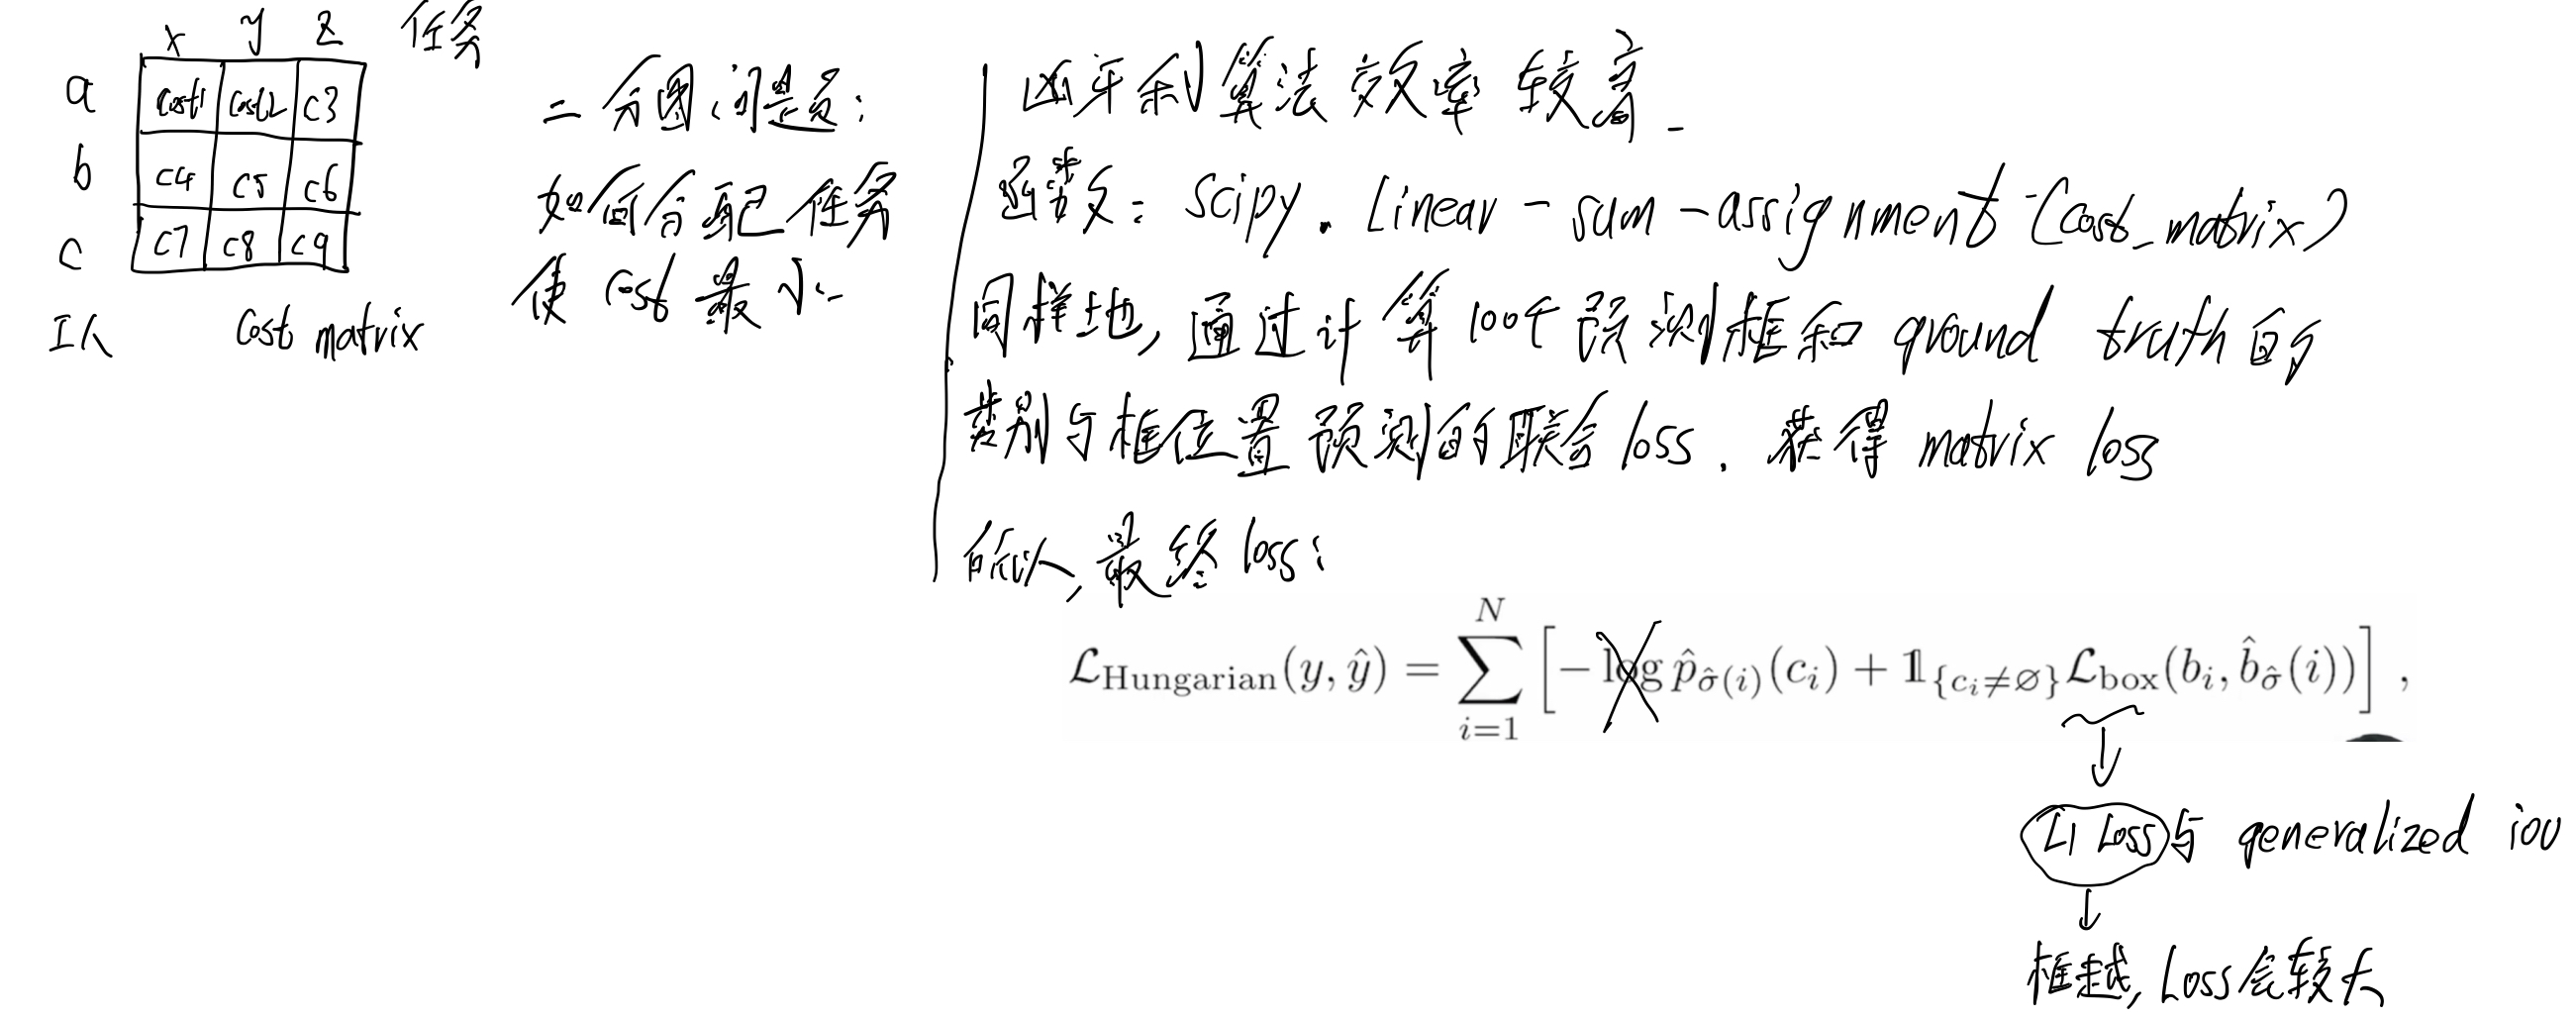 x y z 任务
a cost1 cost2 c3
b c4 c5 c6
c c7 c8 c9
工人 cost matrix
二分图问题:
如何分配任务
使 cost 最小.
匈牙利算法效率较高.
函数: scipy. linear - sum - assignment (cost_matrix)
同样地, 通过计算100个预测框和 ground truth 的
类别与框位置预测的联合 loss. 获得 matrix loss
所以, 最终 loss:
$\mathcal{L}_{\text{Hungarian}}(y, \hat{y}) = \sum_{i=1}^{N} \left[ -\log \hat{p}_{\hat{\sigma}(i)}(c_i) + \mathbb{1}_{\{c_i \neq \varnothing\}} \mathcal{L}_{\text{box}}(b_i, \hat{b}_{\hat{\sigma}}(i)) \right],$
L1 Loss 与 generalized iou
框越, Loss会较大